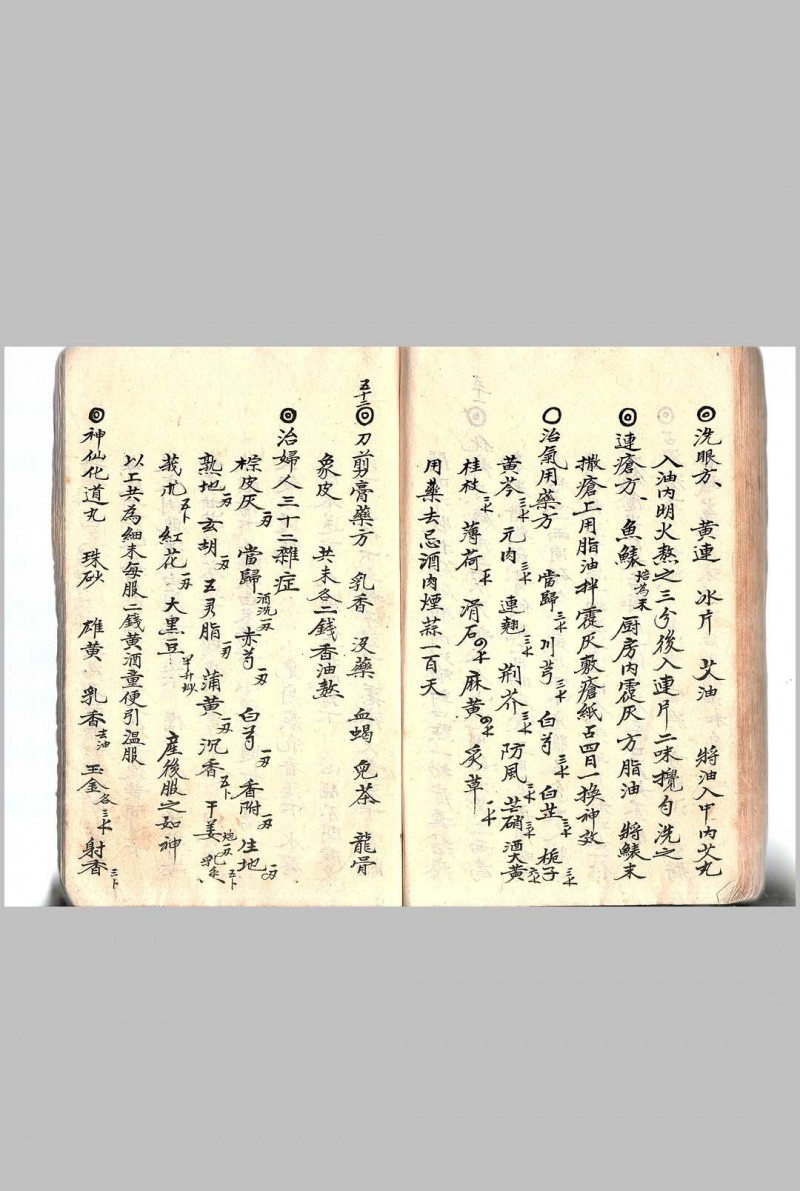 洗眼方、 黄連 冰片 艾油 將油入中内艾丸
入油内明火熬之三分後入連片二味攪勻洗之
連瘡方、 魚鰾焙為末 厨房内霔灰 方脂油 將鰾末
撒瘡上用脂油拌霔灰敷瘡紙占四日一換神效
治氣用藥方 當歸三 川芎三 白芍三 白芷三 梔子三
黄芩三 元肉三 連翹三 荆芥三 防風三 芒硝三 酒大黄
桂枝三 薄荷 滑石 麻黄 炙草一
用藥去忌酒肉煙蒜一百天
五十二 刀剪膏藥方 乳香 没藥 血竭 兒茶 龍骨
象皮 共末各二錢香油熬
治婦人三十二雜症
棕皮灰一刄 當歸酒洗一刄 赤芍一刄 白芍一刄 香附一刄 生地一刄
熟地一刄 玄胡一刄 五灵脂一刄 蒲黄一刄 沉香五卜 干姜炮一刄 乳香五卜
莪朮五卜 紅花一刄 大黑豆半升炒 産後服之如神
以上共為細末每服二錢黄酒童便引温服
神仙化道丸 珠砂 雄黄 乳香去油 玉金各三 射香三卜